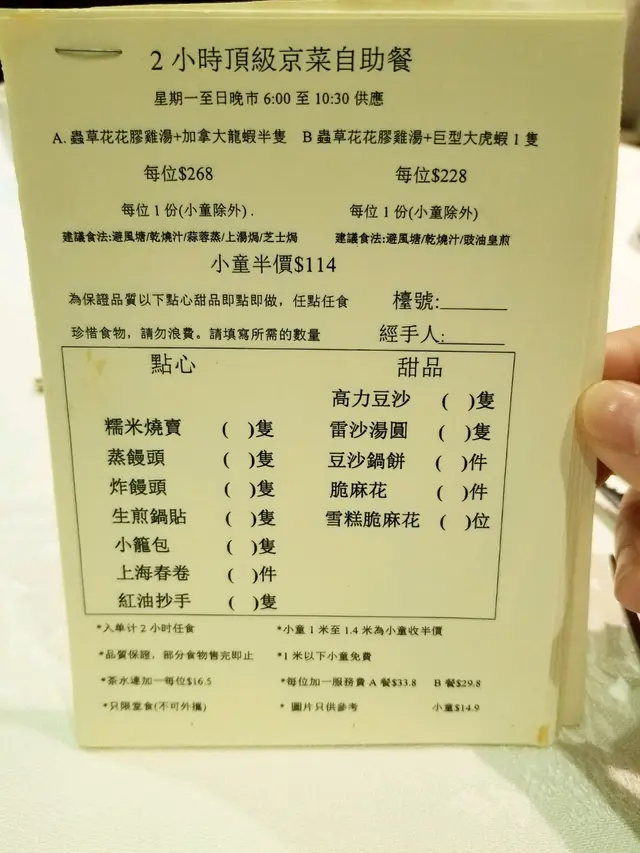 2 小時頂級京菜自助餐
星期一至日晚市 6:00 至 10:30 供應
A. 蟲草花花膠雞湯+加拿大龍蝦半隻 B 蟲草花花膠雞湯+巨型大虎蝦 1 隻
每位$268 每位$228
每位 1 份(小童除外) . 每位 1 份(小童除外)
建議食法:避風塘/乾燒汁/蒜蓉蒸/上湯焗/芝士焗 建議食法:避風塘/乾燒汁/豉油皇煎
小童半價$114
為保證品質以下點心甜品即點即做，任點任食 檯號:______
珍惜食物，請勿浪費。請填寫所需的數量 經手人:______
點心 甜品
高力豆沙 ( )隻
糯米燒賣 ( )隻 雷沙湯圓 ( )隻
蒸饅頭 ( )隻 豆沙鍋餅 ( )件
炸饅頭 ( )隻 脆麻花 ( )件
生煎鍋貼 ( )隻 雪糕脆麻花 ( )位
小籠包 ( )隻
上海春卷 ( )件
紅油抄手 ( )隻
*入单计 2 小時任食 *小童 1 米至 1.4 米為小童收半價
*品質保證，部分食物售完即止 *1 米以下小童免費
*茶水連加一每位$16.5 *每位加一服務費 A 餐$33.8 B 餐$29.8
*只限堂食(不可外攜) * 圖片只供參考 小童$14.9